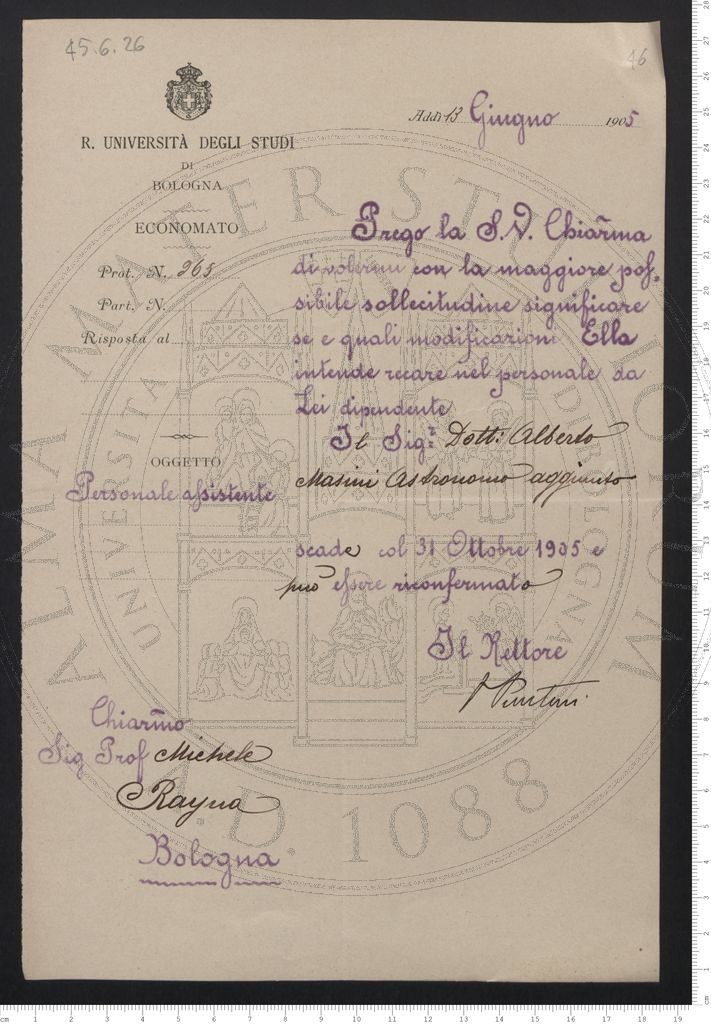 45.6.26
46
Addì 13 Giugno 1905
R. UNIVERSITÀ DEGLI STUDI
DI
BOLOGNA
ECONOMATO
Prot. N. 965
Part. N.
Risposta al
OGGETTO
Personale assistente
Prego la S.V. Chiar̄ma
di volermi con la maggiore pos-
sibile sollecitudine significare
se e quali modificazioni Ella
intende recare nel personale da
Lei dipendente
Il Sigr. Dott. Alberto
Masini Astronomo aggiunto
scade col 31 Ottobre 1905 e
può essere riconfermato
Il Rettore
Puntoni
Chiar̄mo
Sig Prof Michele
Rayna
Bologna
ALMA MATER STUDIORUM
UNIVERSITÀ DI BOLOGNA
A.D. 1088